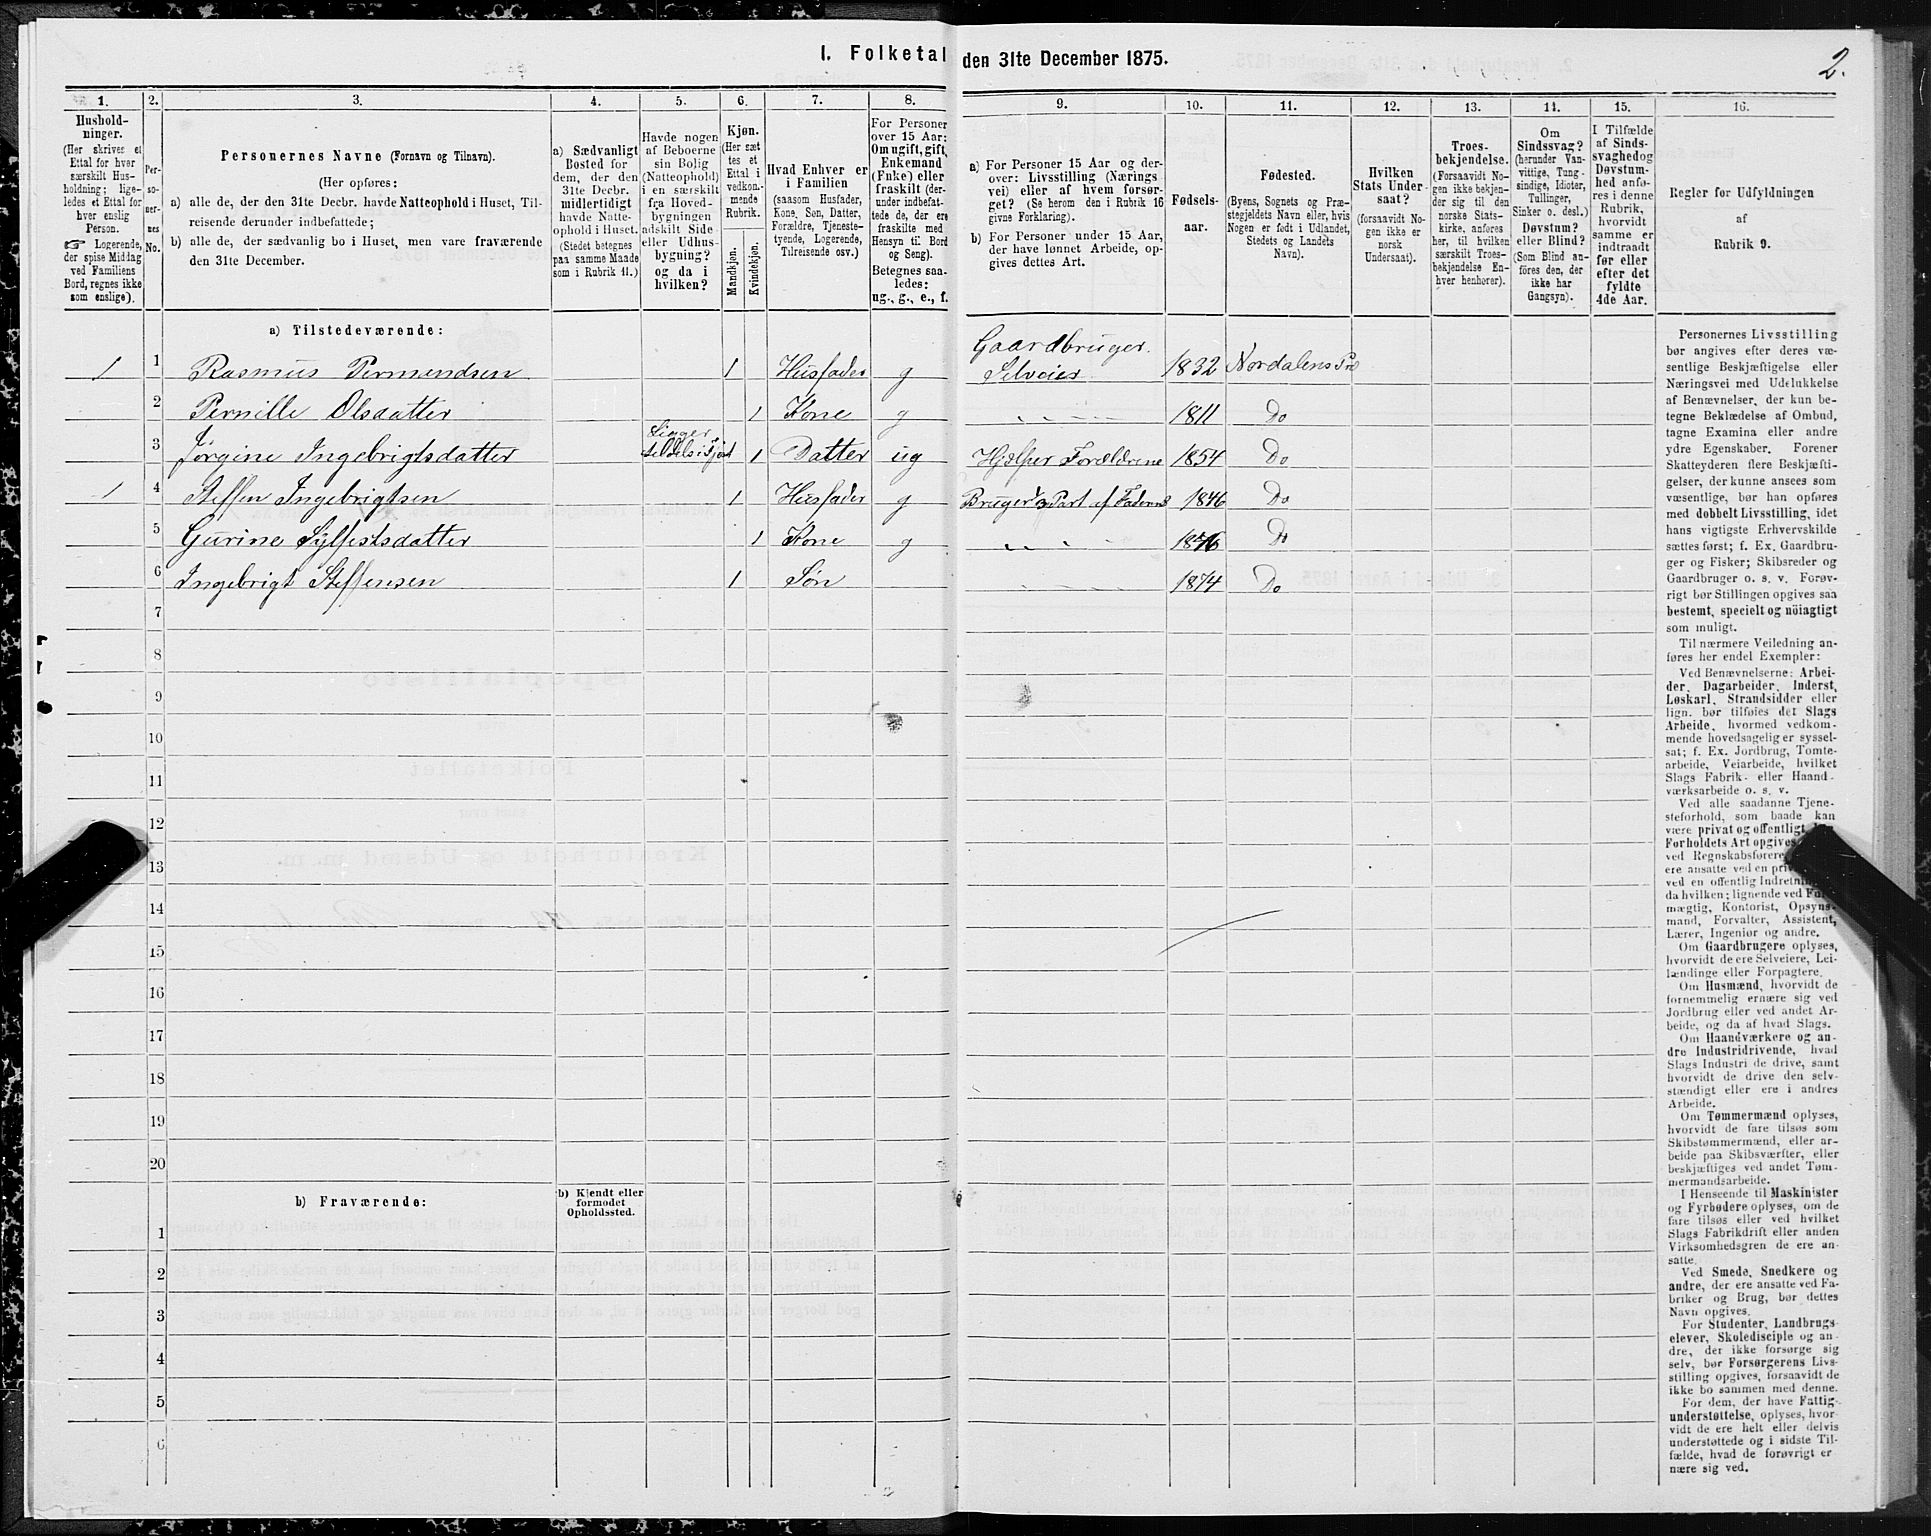 I. Folketal den 31te December 1875.
2.
1.
Hushold-
ninger.
(Her skrives et
Ettal for hver
særskilt Hus-
holdning; lige-
ledes et Ettal for
hver enslig
Person.
☞ Logerende,
der spise Middag
ved Familiens
Bord, regnes ikke
som enslige).
2.
Per-
so-
ner-
nes
No.
3.
Personernes Navne (Fornavn og Tilnavn).
(Her opføres:
a) alle de, der den 31te Decbr. havde Natteophold i Huset, Til-
reisende derunder indbefattede;
b) alle de, der sædvanlig bo i Huset, men vare fraværende
den 31te December.
4.
a) Sædvanligt
Bosted for
dem, der den
31te Decbr.
midlertidigt
havde Natte-
ophold i Huset.
(Stedet betegnes
paa samme Maade
som i Rubrik 11.)
5.
Havde nogen
af Beboerne
sin Bolig
(Natteophold)
i en særskilt
fra Hoved-
bygningen
adskilt Side-
eller Udhus-
bygning?
og da i
hvilken?
6.
Kjøn.
(Her sæt-
tes et
Ettal i
vedkom-
mende
Rubrik.
Mandkjøn.
Kvindekjøn.
7.
Hvad Enhver er
i Familien
(saasom Husfader,
Kone, Søn, Datter,
Forældre, Tjeneste-
tyende, Logerende,
Tilreisende osv.)
8.
For Personer
over 15 Aar:
Om ugift, gift,
Enkemand
(Enke) eller
fraskilt (der-
under indbefat-
tede de, der ere
fraskilte med
Hensyn til Bord
og Seng).
Betegnes saa-
ledes:
ug., g., e., f.
9.
a) For Personer 15 Aar og der-
over: Livsstilling (Nærings-
vei) eller af hvem forsør-
get? (Se herom den i Rubrik 16
givne Forklaring).
b) For Personer under 15 Aar,
der have lønnet Arbeide, op-
gives dettes Art.
10.
Fødsels-
aar.
11.
Fødested.
(Byens, Sognets og Præ-
stegjeldets Navn eller, hvis
Nogen er født i Udlandet,
Stedets og Landets
Navn).
12.
Hvilken
Stats Under-
saat?
(forsaavidt No-
gen ikke er
norsk
Undersaat).
13.
Troes-
bekjendelse.
(Forsaavidt No-
gen ikke bekjen-
der sig til den
norske Stats-
kirke, anføres
her, til hvilken
særskilt Troes-
bekjendelse En-
hver henhører).
14.
Om
Sindssvag?
(herunder Van-
vittige, Tung-
sindige, Idioter,
Tullinger,
Sinker o. desl.)
Døvstum?
eller Blind?
(Som Blind an-
føres den, der
ikke har
Gangsyn).
15.
I Tilfælde
af Sinds-
svaghed og
Døvstum-
hed anfø-
res i denne
Rubrik,
hvorvidt
samme er
indtraadt
før eller
efter det
fyldte
4de Aar.
16.
Regler for Udfyldningen
af
Rubrik 9.
a) Tilstedeværende:
1 1 Rasmus Permundsen 1 Husfader g Gaardbruger. Selveier 1832 Nordalens Præ
2 Pernille Olsdatter 1 Kone g 1811 Do
3 Jørgine Ingebrigtsdatter 1 Datter ug Hjælper Forældrene 1854 Do
1 4 Steffen Ingebrigtsen 1 Husfader g Bruger Part af Faderens 1846 Do
5 Gurine Sylfestsdatter 1 Kone g Do
6 Ingebrigt Steffensen 1 Søn 1874 Do
7
8
9
10
11
12
13
14
15
16
17
18
19
20
b) Fraværende:
b) Kjendt eller
formodet
Opholdssted.
1
2
3
4
5
6
Personernes Livsstilling
bør angives efter deres væ-
sentlige Beskjæftigelse eller
Næringsvei med Udelukkelse
af Benævnelser, der kun be-
tegne Beklædelse af Ombud,
tagne Examina eller andre
ydre Egenskaber. Forener
Skatteyderen flere Beskjæfti-
gelser, der kunne ansees som
væsentlige, bør han opføres
med dobbelt Livsstilling, idet
hans vigtigste Erhvervskilde
sættes først; f. Ex. Gaardbru-
ger og Fisker; Skibsreder og
Gaardbruger o. s. v. Forøv-
rigt bør Stillingen opgives saa
bestemt, specielt og nöiagtigt
som muligt.
Til nærmere Veiledning an-
føres her endel Exempler:
Ved Benævnelserne: Arbei-
der, Dagarbeider, Inderst,
Løskarl, Strandsidder eller
lign. bør tilføies det Slags
Arbeide, hvormed vedkom-
mende hovedsagelig er syssel-
sat; f. Ex. Jordbrug, Tomte-
arbeide, Veiarbeide, hvilket
Slags Fabrik- eller Haand-
værksarbeide o. s. v.
Ved alle saadanne Tjene-
steforhold, som baade kan
være privat og offentligt,
Forholdets Art opgives
ved Regnskabsførere,
ere ansatte ved en
ved en offentlig Indretning,
da hvilken; lignende ved Fuld-
mægtig, Kontorist, Opsyns-
mand, Forvalter, Assistent,
Lærer, Ingeniør og andre.
Om Gaardbrugere oplyses,
hvorvidt de ere Selveiere, Lei-
lændinge eller Forpagtere.
Om Husmænd, hvorvidt de
fornemmelig ernære sig ved
Jordbrug eller ved andet Ar-
beide, og da af hvad Slags.
Om Haandværkere og an-
dre Industridrivende, hvad
Slags Industri de drive, samt
hvorvidt de drive den selv-
stændigt eller ere i andres
Arbeide.
Om Tømmermænd oplyses,
hvorvidt de fare tilsøs som
Skibstømmermænd, eller ar-
beide paa Skibsværfter, eller
beskjæftiges ved andet Tøm-
mermandsarbeide.
I Henseende til Maskinister
og Fyrbødere oplyses, om de
fare tilsøs eller ved hvilket
Slags Fabrikdrift eller anden
Virksomhedsgren de ere an-
satte.
Ved Smede, Snedkere og
andre, der ere ansatte ved Fa-
briker og Brug, bør dettes
Navn opgives.
For Studenter, Landbrugs-
elever, Skoledisciple og an-
dre, der ikke forsørge sig
selv, bør Forsørgerens Livs-
stilling opgives, forsaavidt de
ikke bo sammen med denne.
For dem, der have Fattig-
understøttelse, oplyses, hvor-
vidt de ere helt eller delvis
understøttede og i sidste Til-
fælde, hvad de forøvrigt er-
nære sig ved.